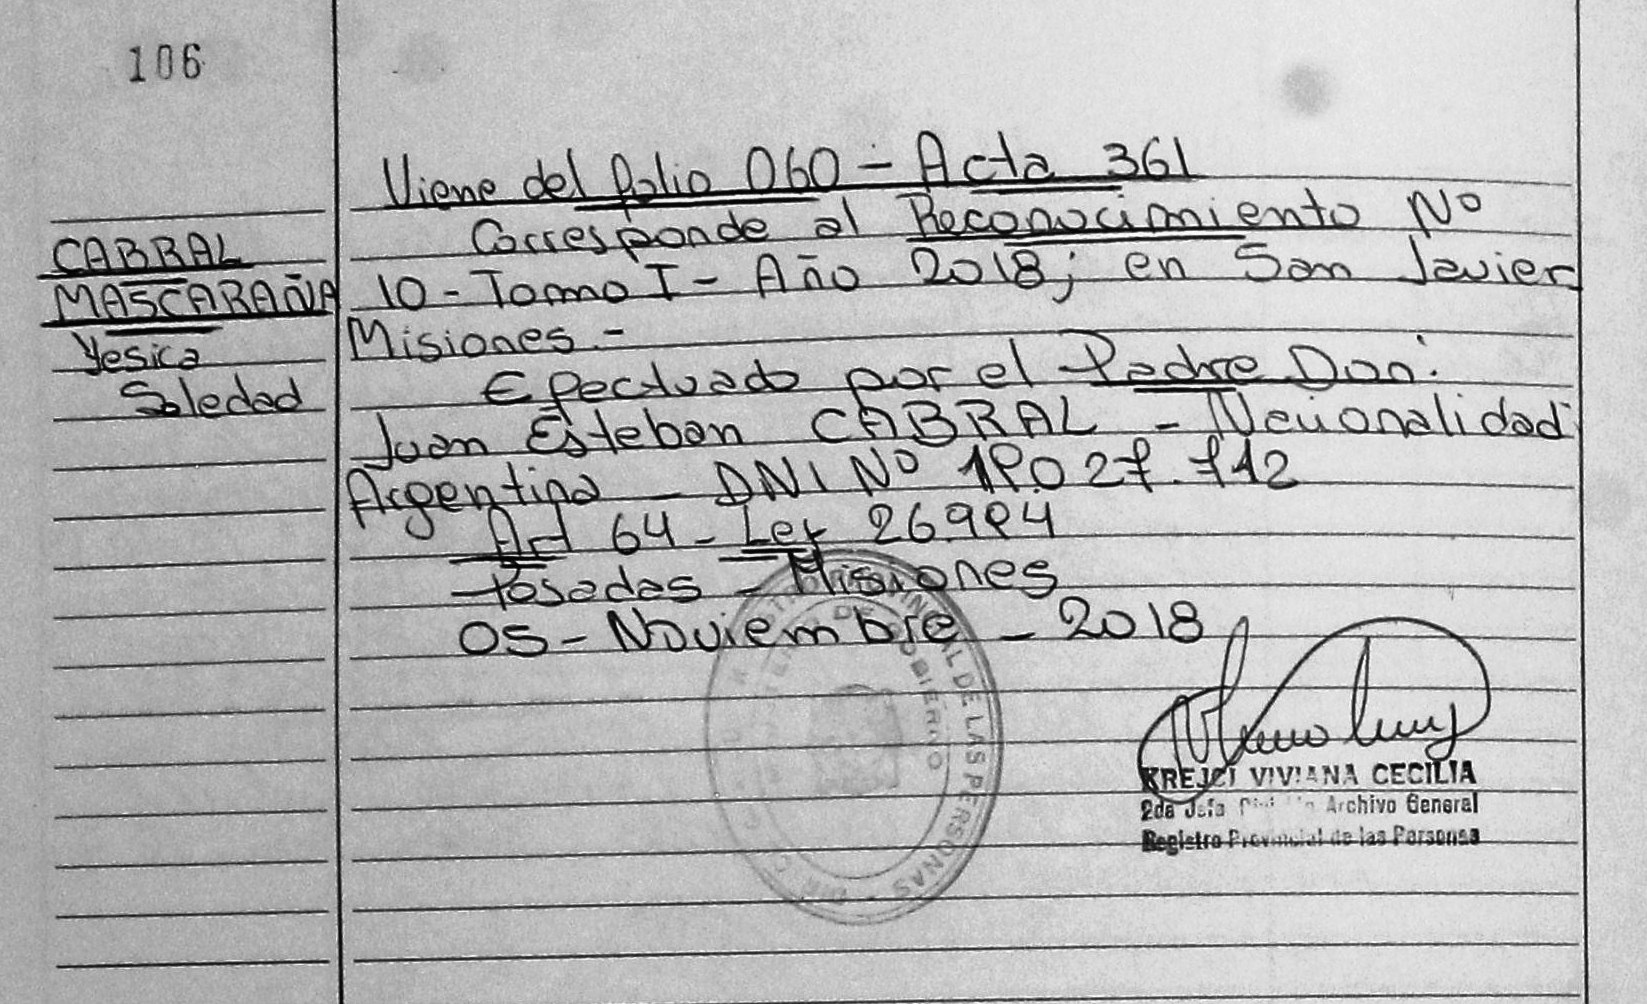 106
CABRAL
MASCARAÑA
Yesica
Soledad
Viene del folio 060 - Acta 361
Corresponde al Reconocimiento Nº
10 - Tomo I - Año 2018; en San Javier
Misiones.-
Efectuado por el Padre Don:
Juan Esteban CABRAL - Nacionalidad
Argentina - DNI Nº
Art 64 - Ley 26.994
Posadas - Misiones
05 - Noviembre - 2018
DE LAS PERSONAS
GOBIERNO
KREJCI VIVIANA CECILIA
2da Jefa Archivo General
Registro Provincial de las Personas